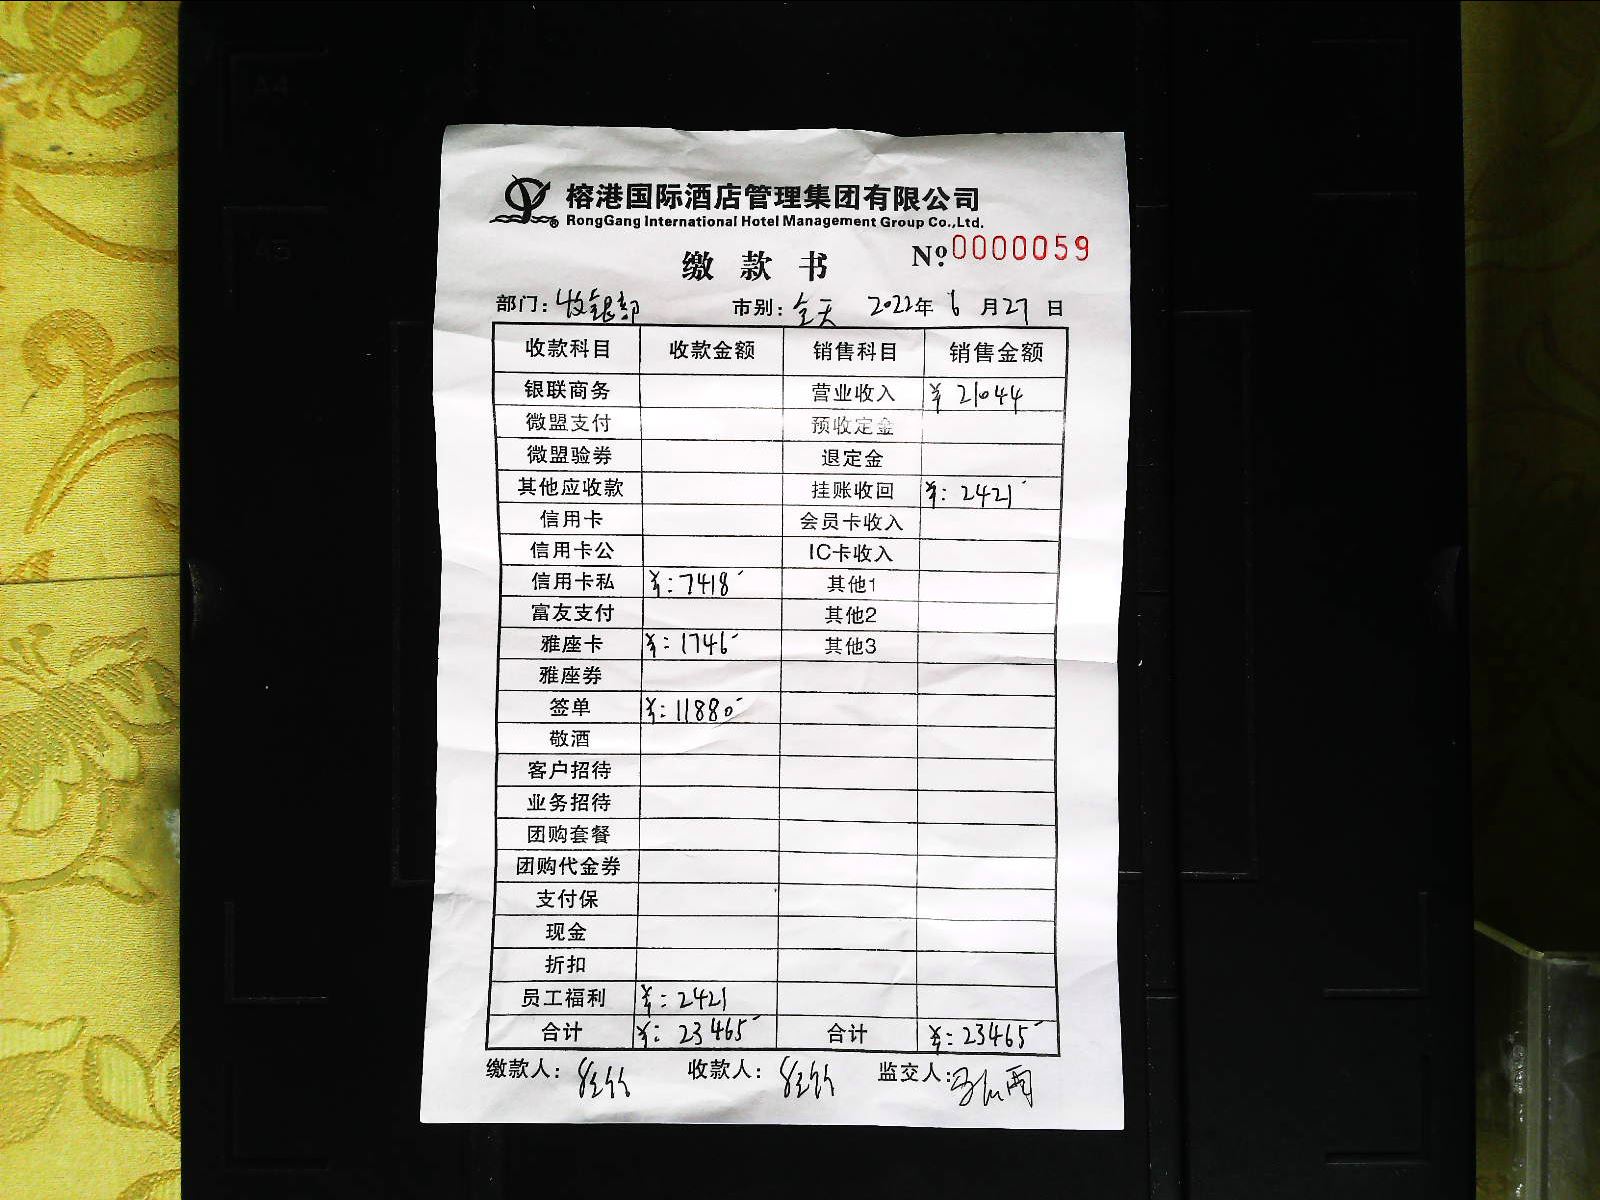 榕港国际酒店管理集团有限公司
RongGang International Hotel Management Group Co.,Ltd.
缴款书 Nº 0000059
部门：收银部 市别：全天 2022年6月27日
收款科目 收款金额 销售科目 销售金额
银联商务 营业收入 ¥ 21044
微盟支付 预收定金
微盟验券 退定金
其他应收款 挂账收回 ¥：2421
信用卡 会员卡收入
信用卡公 IC卡收入
信用卡私 ¥：7418 其他1
富友支付 其他2
雅座卡 ¥：1746 其他3
雅座券
签单 ¥：11880
敬酒
客户招待
业务招待
团购套餐
团购代金券
支付保
现金
折扣
员工福利 ¥：2421
合计 ¥：23465 合计 ¥：23465
缴款人： 收款人： 监交人：
A4